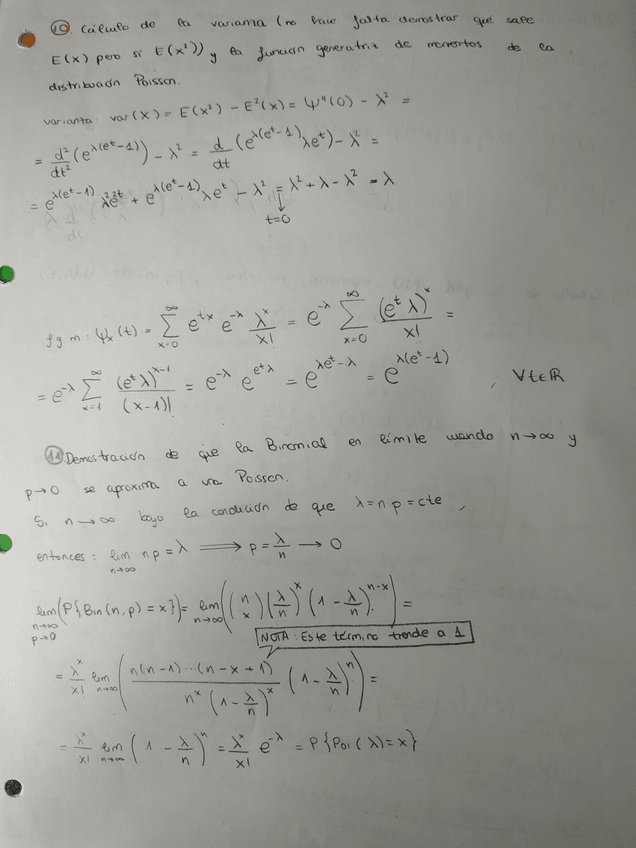 ⑩ Cálculo de la varianza (no hace falta demostrar que sale
E(x) pero si E(x²)) y la función generatriz de momentos de la
distribución Poisson.
varianza: var(X) = E(x²) - E²(x) = Ψ''(0) - λ² =
= d²/dt² (e^{λ(e^t-1)}) - λ² = d/dt (e^{λ(e^t-1)} λe^t) - λ² =
= e^{λ(e^t-1)} λ²e^{2t} + e^{λ(e^t-1)} λe^t - λ² = λ² + λ - λ² = λ
t=0
fgm: Ψ_x(t) = Σ_{x=0}^{∞} e^{tx} e^{-λ} λ^x/x! = e^{-λ} Σ_{x=0}^{∞} (e^t λ)^x/x! =
= e^{-λ} Σ_{x=1}^{∞} (e^t λ)^{x-1}/(x-1)! = e^{-λ} e^{e^t λ} = e^{λe^t - λ} = e^{λ(e^t-1)} , ∀t∈ℝ
⑪ Demostración de que la Binomial en límite cuando n→∞ y
p→0 se aproxima a una Poisson.
Si n→∞ bajo la condición de que λ = n p = cte,
entonces: lim_{n→∞} np = λ ⟹ p = λ/n → 0
lim_{n→∞ p→0} (P{Bin(n,p) = x}) = lim_{n→∞} ((n x) (λ/n)^x (1 - λ/n)^{n-x}) =
NOTA: Este término tiende a 1
= λ^x/x! lim_{n→∞} (n(n-1)···(n-x+1) / n^x (1 - λ/n)^x (1 - λ/n)^n) =
= λ^x/x! lim_{n→∞} (1 - λ/n)^n = λ^x/x! e^{-λ} = P{Poi(λ)=x}